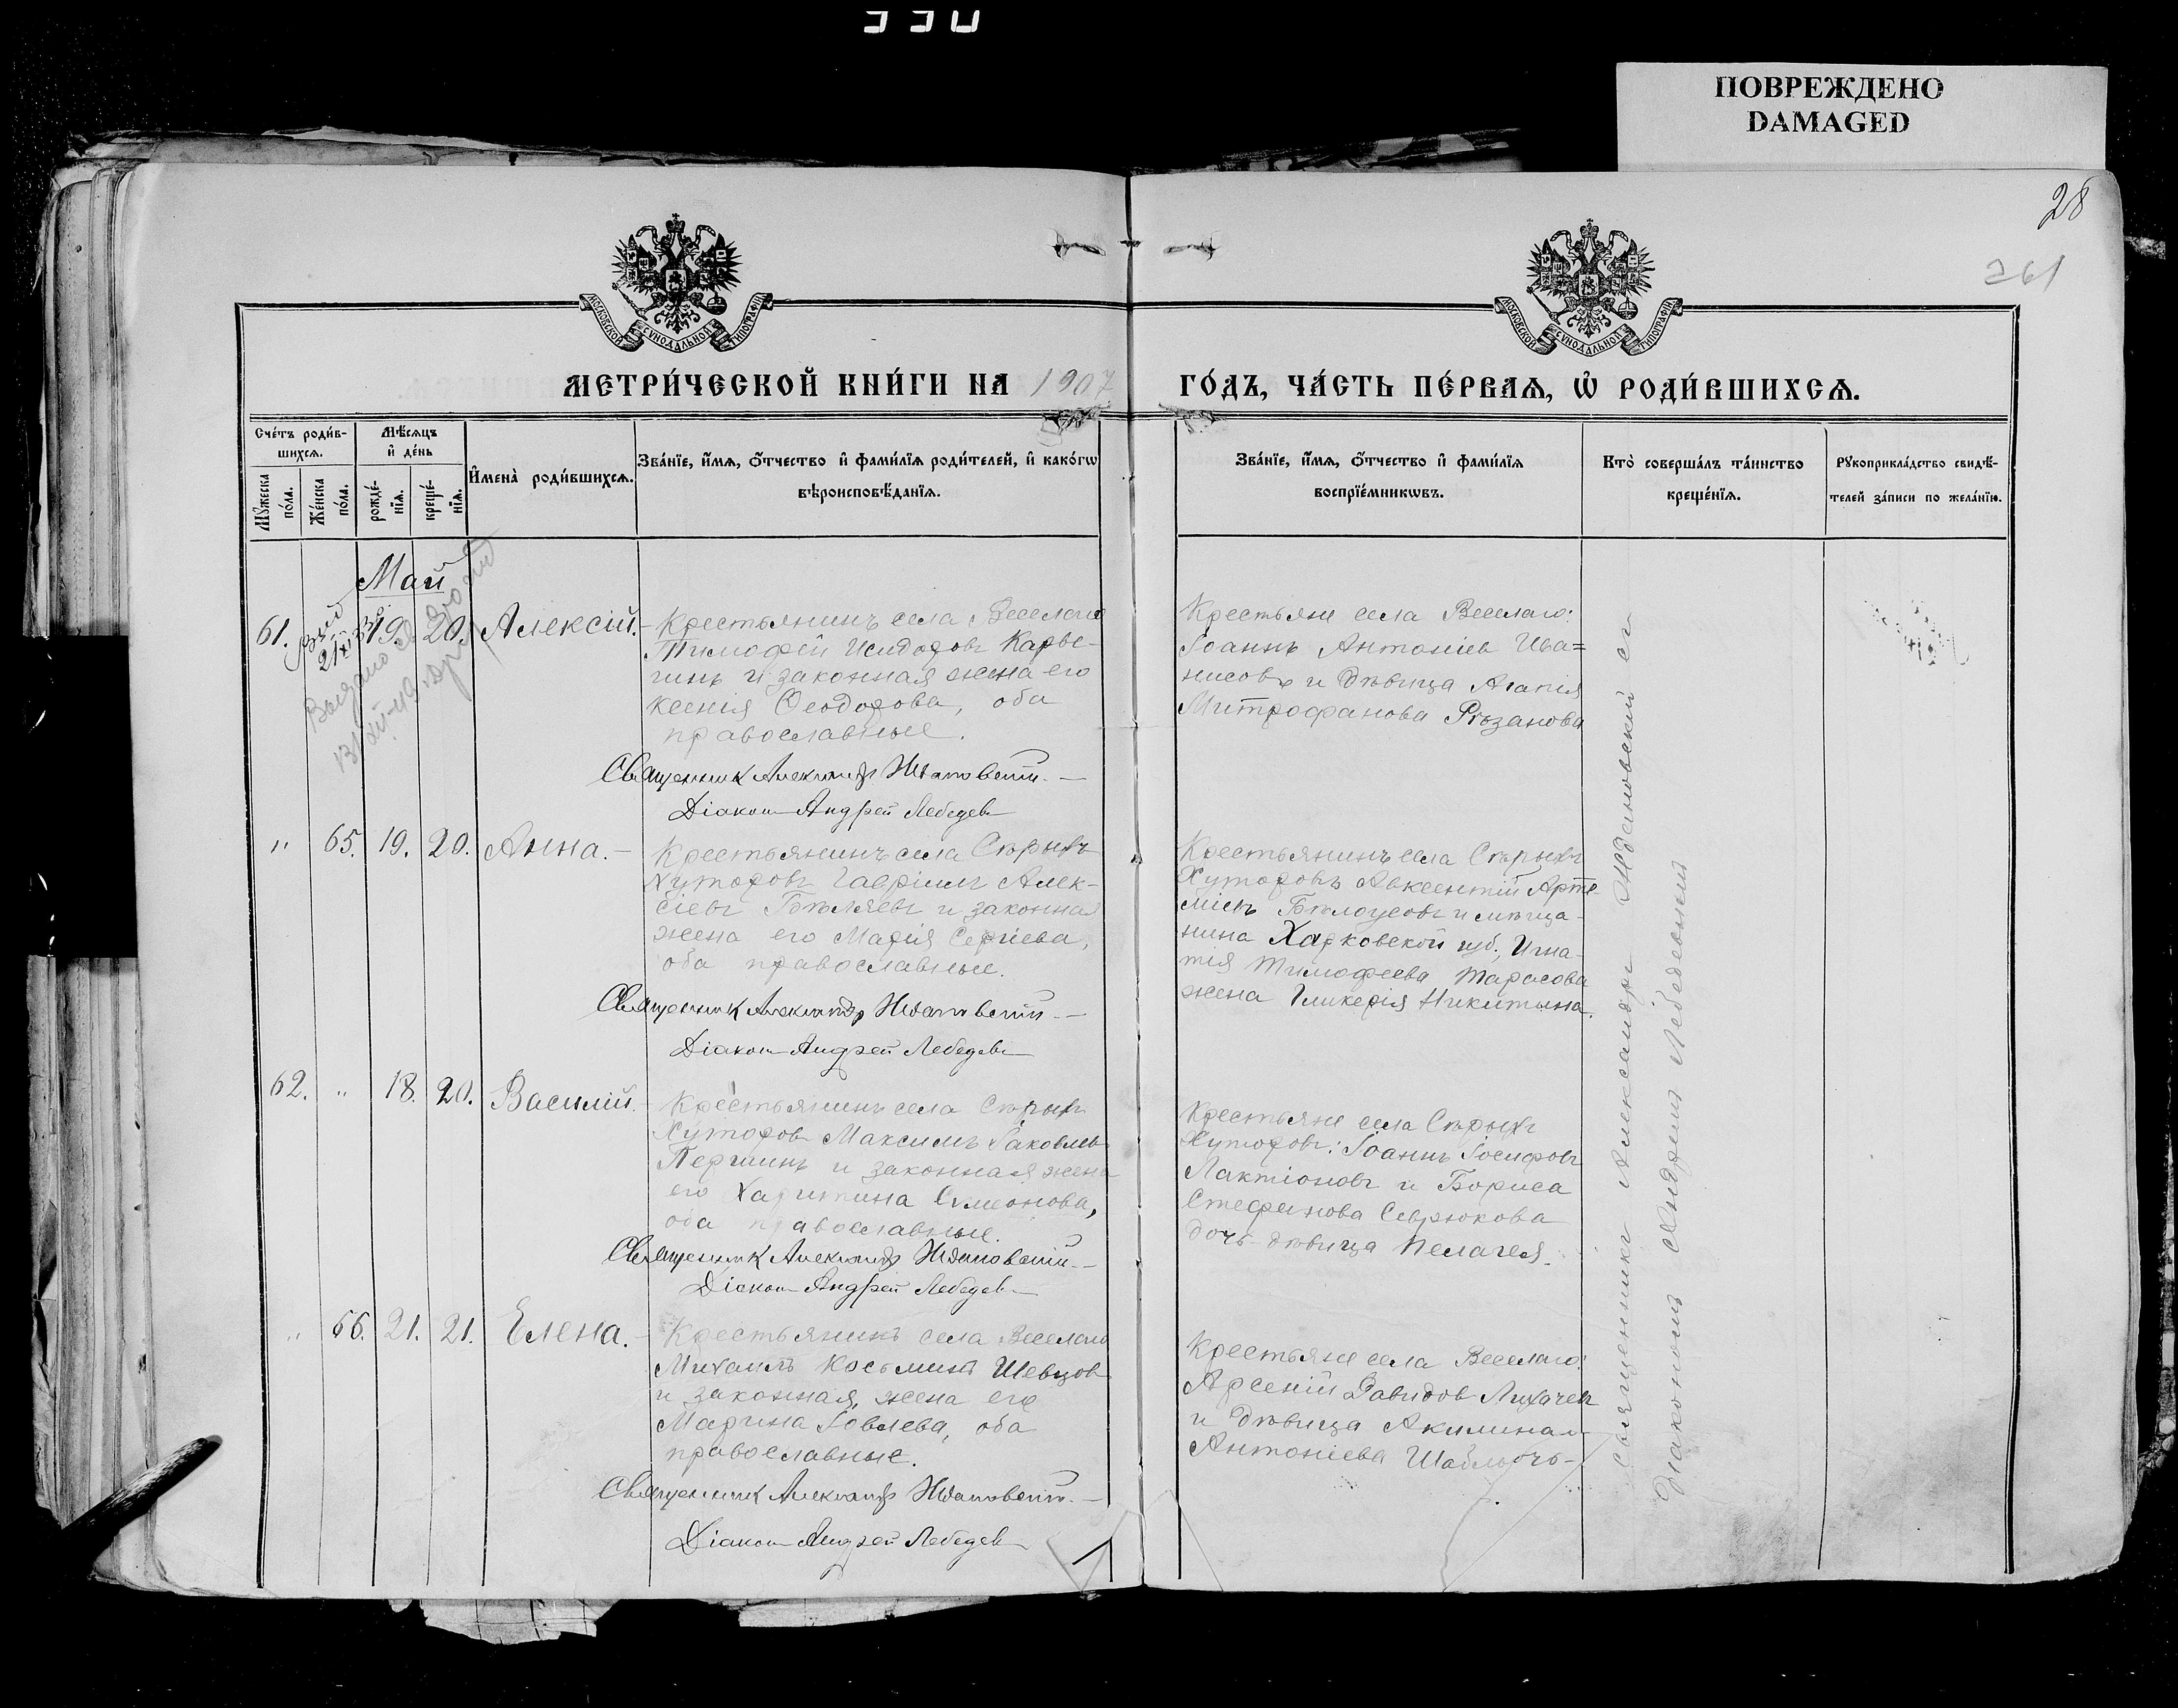 330
ПОВРЕЖДЕНО
DAMAGED
28
261
МОСКОВСКОЙ СѴНОДАЛЬНОЙ ТИПОГРАФІИ
МОСКОВСКОЙ СѴНОДАЛЬНОЙ ТИПОГРАФІИ
МЕТРИ́ЧЕСКОЙ КНИ́ГИ НА 1907
ГО́ДЪ, ЧА́СТЬ ПЕ́РВАѦ, Ѡ҆ РОДИ́ВШИХСѦ.
Сче́тъ роди́в-
шихсѧ.
Мꙋ́жеска по́ла.
Же́нска по́ла.
Мѣ́сѧцъ
и҆ де́нь
рожде́-
нїѧ.
креще́-
нїѧ.
И҆мена̀ роди́вшихсѧ.
Зва́нїе, и҆́мѧ, ѻ҆́тчество и҆ фами́лїѧ роди́телей, и҆ како́гѡ
вѣроисповѣ́данїѧ.
Зва́нїе, и҆́мѧ, ѻ҆́тчество и҆ фами́лїѧ
воспрїе́мникѡвъ.
Кто̀ соверша́лъ та́инство
креще́нїѧ.
Рꙋкоприкла́дство свидѣ́-
телей за́писи по жела́нїю.
Май
61. 19. 20. Алексій.
Крестьянинъ села Веселаго
Тимофей Исидоровъ Карве-
гинъ и законная жена его
Ксенія Ѳеодорова, оба
православные.
Священникъ Александръ Ждановскій.
Діаконъ Андрей Лебедевъ
Крестьяне села Веселаго:
Іоаннъ Антоніевъ Ива=
нисовъ и дѣвица Агапія
Митрофанова Рѣзанова
" 65. 19. 20. Анна.
Крестьянинъ села Сѣрыхъ
Хуторовъ Гавріилъ Алек-
сіевъ Бѣляевъ и законная
жена его Марія Сергіева,
оба православные.
Священникъ Александръ Ждановскій.
Діаконъ Андрей Лебедевъ
Крестьянинъ села Сѣрыхъ
Хуторовъ Авксентій Арте
міевъ Бѣлоусовъ и мѣща-
нина Харковской губ. Игна-
тія Тимофеева Тарасова
жена Гликерія Никитина.
62. " 18. 20. Василій.
Крестьянинъ села Сѣрыхъ
Хуторовъ Максимъ Іаковлевъ
Першинъ и законная жена
его Харитина Симеонова,
оба православные.
Священникъ Александръ Ждановскій.
Діаконъ Андрей Лебедевъ
Крестьяне села Сѣрыхъ
Хуторовъ: Іоаннъ Іосифовъ
Лактіоновъ и Бориса
Стефанова Севрюкова
дочь дѣвица Пелагея.
" 66. 21. 21. Елена.
Крестьянинъ села Веселаго
Михаилъ Косьминъ Шевцовъ
и законная жена его
Марина Іовлева, оба
православные.
Священникъ Александръ Ждановскій.
Діаконъ Андрей Лебедевъ
Крестьяне села Веселаго:
Арсеній Давидовъ Лихачевъ
и дѣвица Акилина
Антоніева
Священникъ Александръ Ждановскій съ
діакономъ Андреемъ Лебедевымъ